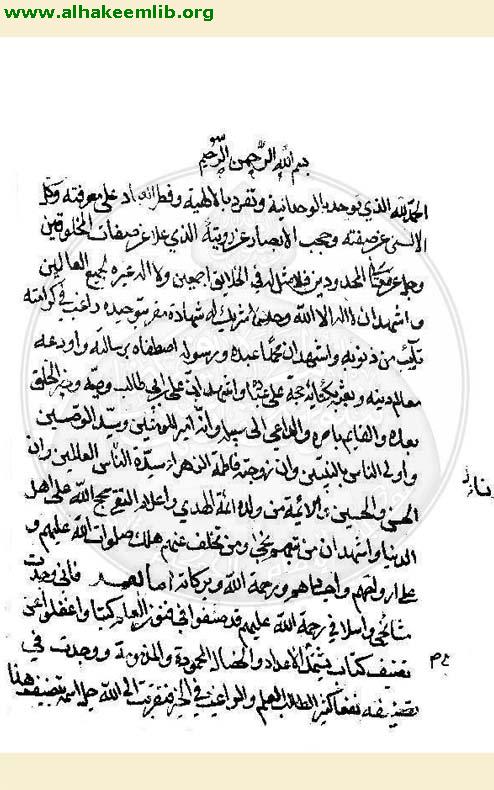 www.alhakeemlib.org
بسم الله الرحمن الرحيم
الحمد لله الذي توحد بالوحدانية وتفرد بالالهية وفطر العباد على معرفته وكل
الالسن عن صفته وحجب الابصار عن رويته الذي علا عن صفات المخلوقين
وجل عن معاني المحدودين فلا مثل له في الخلايق اجمعين ولا اله غيره لجميع العالمين
واشهد ان لا اله الا الله وحده لا شريك له شهادة مقر بتوحيده راغب في كرامته
تايب من ذنوبه واشهد ان محمدا عبده ورسوله اصطفاه برسالته واودعه
معالم دينه وبعثه بكتابه حجة على عباده واشهد ان علي بن ابي طالب وصيه وخير الخلق
بعده والقايم بامره والداعي الى سبيله وانه امير المؤمنين وسيد الوصيين
واولى الناس بالنبيين وان زوجته فاطمة الزهراء سيدة النساء العالمين وان
الحسن والحسين والائمة من ولده ائمة الهدى واعلام التقى حجج الله على اهل
الدنيا واشهد ان من تبعهم نجى ومن تخلف عنهم هلك صلوات الله عليهم و
على ارواحهم واجسادهم ورحمة الله وبركاته اما بعد فاني وجدت
مشائخي واسلافي رحمة الله عليهم قد صنفوا في فنون العلم كتبا واغفلوا عن
تصنيف كتاب يشتمل الاعداد والخصال المحمودة والمذمومة ووجدت في
تصنيفه نفعا كثيرا لطالب العلم والراغب في الخير فتقربت الى الله جل اسمه بتصنيف هذا